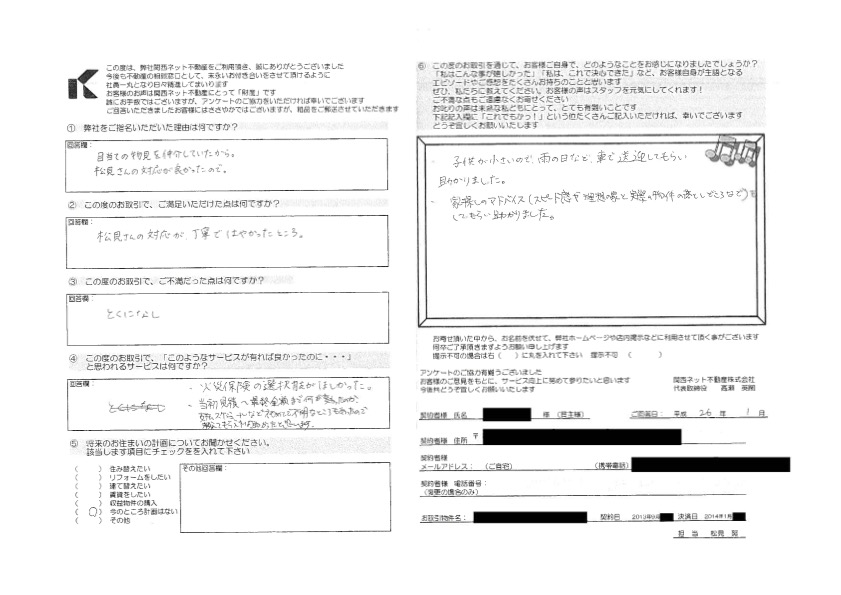 この度は、弊社関西ネット不動産をご利用頂き、誠にありがとうございました
今後も不動産の相談窓口として、末永いお付き合いをさせて頂けるように
社員一丸となり日々精進してまいります
お客様のお声は関西ネット不動産にとって「財産」です
誠にお手数ではございますが、アンケートのご協力をいただければ幸いでございます
ご回答いただきましたお客様にはささやかではございますが、粗品をご郵送させていただきます
① 弊社をご指名いただいた理由は何ですか?
回答欄:
目当ての物見を仲介していたから。
松見さんの対応が良かったので。
② この度のお取引で、ご満足いただけた点は何ですか?
回答欄:
松見さんの対応が、丁寧ではやかったところ。
③ この度のお取引で、ご不満だった点は何ですか?
回答欄:
とくになし
④ この度のお取引で、「このようなサービスが有れば良かったのに・・・」
と思われるサービスは何ですか?
回答欄:
・火災保険の選択肢がほしかった。
とくになし
・当初見積→最終金額まで何が
⑤ 将来のお住まいの計画についてお聞かせください。
該当します項目にチェックをを入れて下さい
( ) 住み替えたい
( ) リフォームをしたい
( ) 建て替えたい
( ) 賃貸をしたい
( ) 収益物件の購入
(○) 今のところ計画はない
( ) その他
その他回答欄:
⑥ この度のお取引を通じて、お客様ご自身で、どのようなことをお感じになりましたでしょうか?
「私はこんな事が嬉しかった」「私は、これで決心できた」など、お客様自身が主語となる
エピソードやご感想をたくさんお持ちのことと思います
ぜひ、私たちに教えてください。お客様の声はスタッフを元気にしてくれます!
ご不満な点もご遠慮なくお寄せください
お叱りの声は未熟な私どもにとって、とても有難いことです
下記記入欄に「これでもか!」という位たくさんご記入いただければ、幸いでございます
どうぞ宜しくお願いいたします
・ 子供が小さいので、雨の日など、車で送迎してもらい
助かりました。
・ 家探しのアドバイス(スピード感や理想の家と実際の物件の落としどころなど)を
してもらい助かりました。
お寄せ頂いた中から、お名前を伏せて、弊社ホームページや店内掲示などに利用させて頂く事がございます
何卒ご了承頂きますようお願い申し上げます
掲示不可の場合は右( )に丸を入れて下さい 掲示不可 ( )
アンケートのご協力有難うございました
お客様のご意見をもとに、サービス向上に努めて参りたいと思います
今後共どうぞ宜しくお願いいたします
関西ネット不動産株式会社
代表取締役 高瀬 英剛
契約者様 氏名 様 (ご主様)
ご回答日: 平成 26 年 1 日
契約者様 住所 〒
契約者様
メールアドレス: (ご自宅) (携帯電話)
契約者様 電話番号:
(変更の場合のみ)
お取引物件名: 契約日 2013年9月 決済日 2014年1月
担 当 松見 努